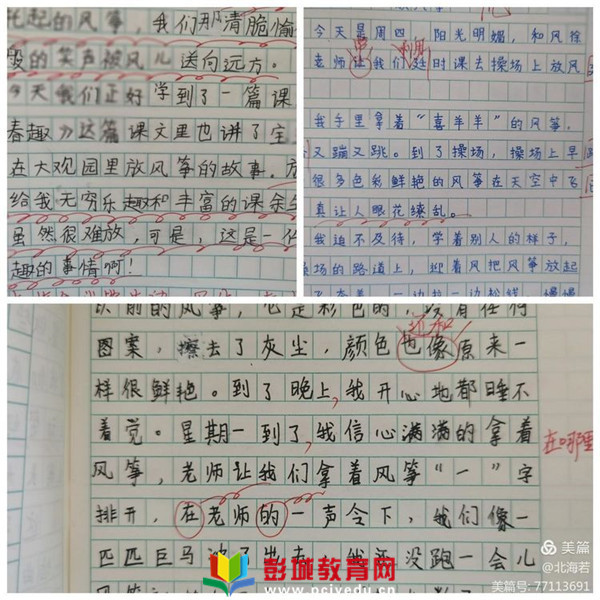 托起的风筝，我们那清脆愉
的笑声被风儿送向远方。
今天我们正好学到了一篇课
春趣》这篇课文里也讲了宝
在大观园里放风筝的故事。
给我无穷乐趣和丰富的课余生
虽然很难放，可是，这是一件
趣的事情啊！
今天是周四，阳光明媚，和风徐
老师让我们延时课去操场上放风
利用
我手里拿着“喜羊羊”的风筝，
又蹦又跳。到了操场，操场上早
很多色彩鲜艳的风筝在天空中飞
真让人眼花缭乱。
我迫不及待，学着别人的样子，
场的路道上，迎着风把风筝放起
一边拉一边松线，慢慢
以前的风筝，它是彩色的，没有任何
图案，擦去了灰尘，颜色也像原来一
还和
样很鲜艳。到了晚上，我开心地都睡不
着觉。星期一到了，我信心满满的拿着
在哪里
风筝，老师让我们拿着风筝“一”字
排开，在老师的一声令下，我们像一
匹匹巨马冲了出去，我还没跑一会儿
彭城教育网
www.pcjyedu.cn
美篇
@北海若
美篇号: 77113691